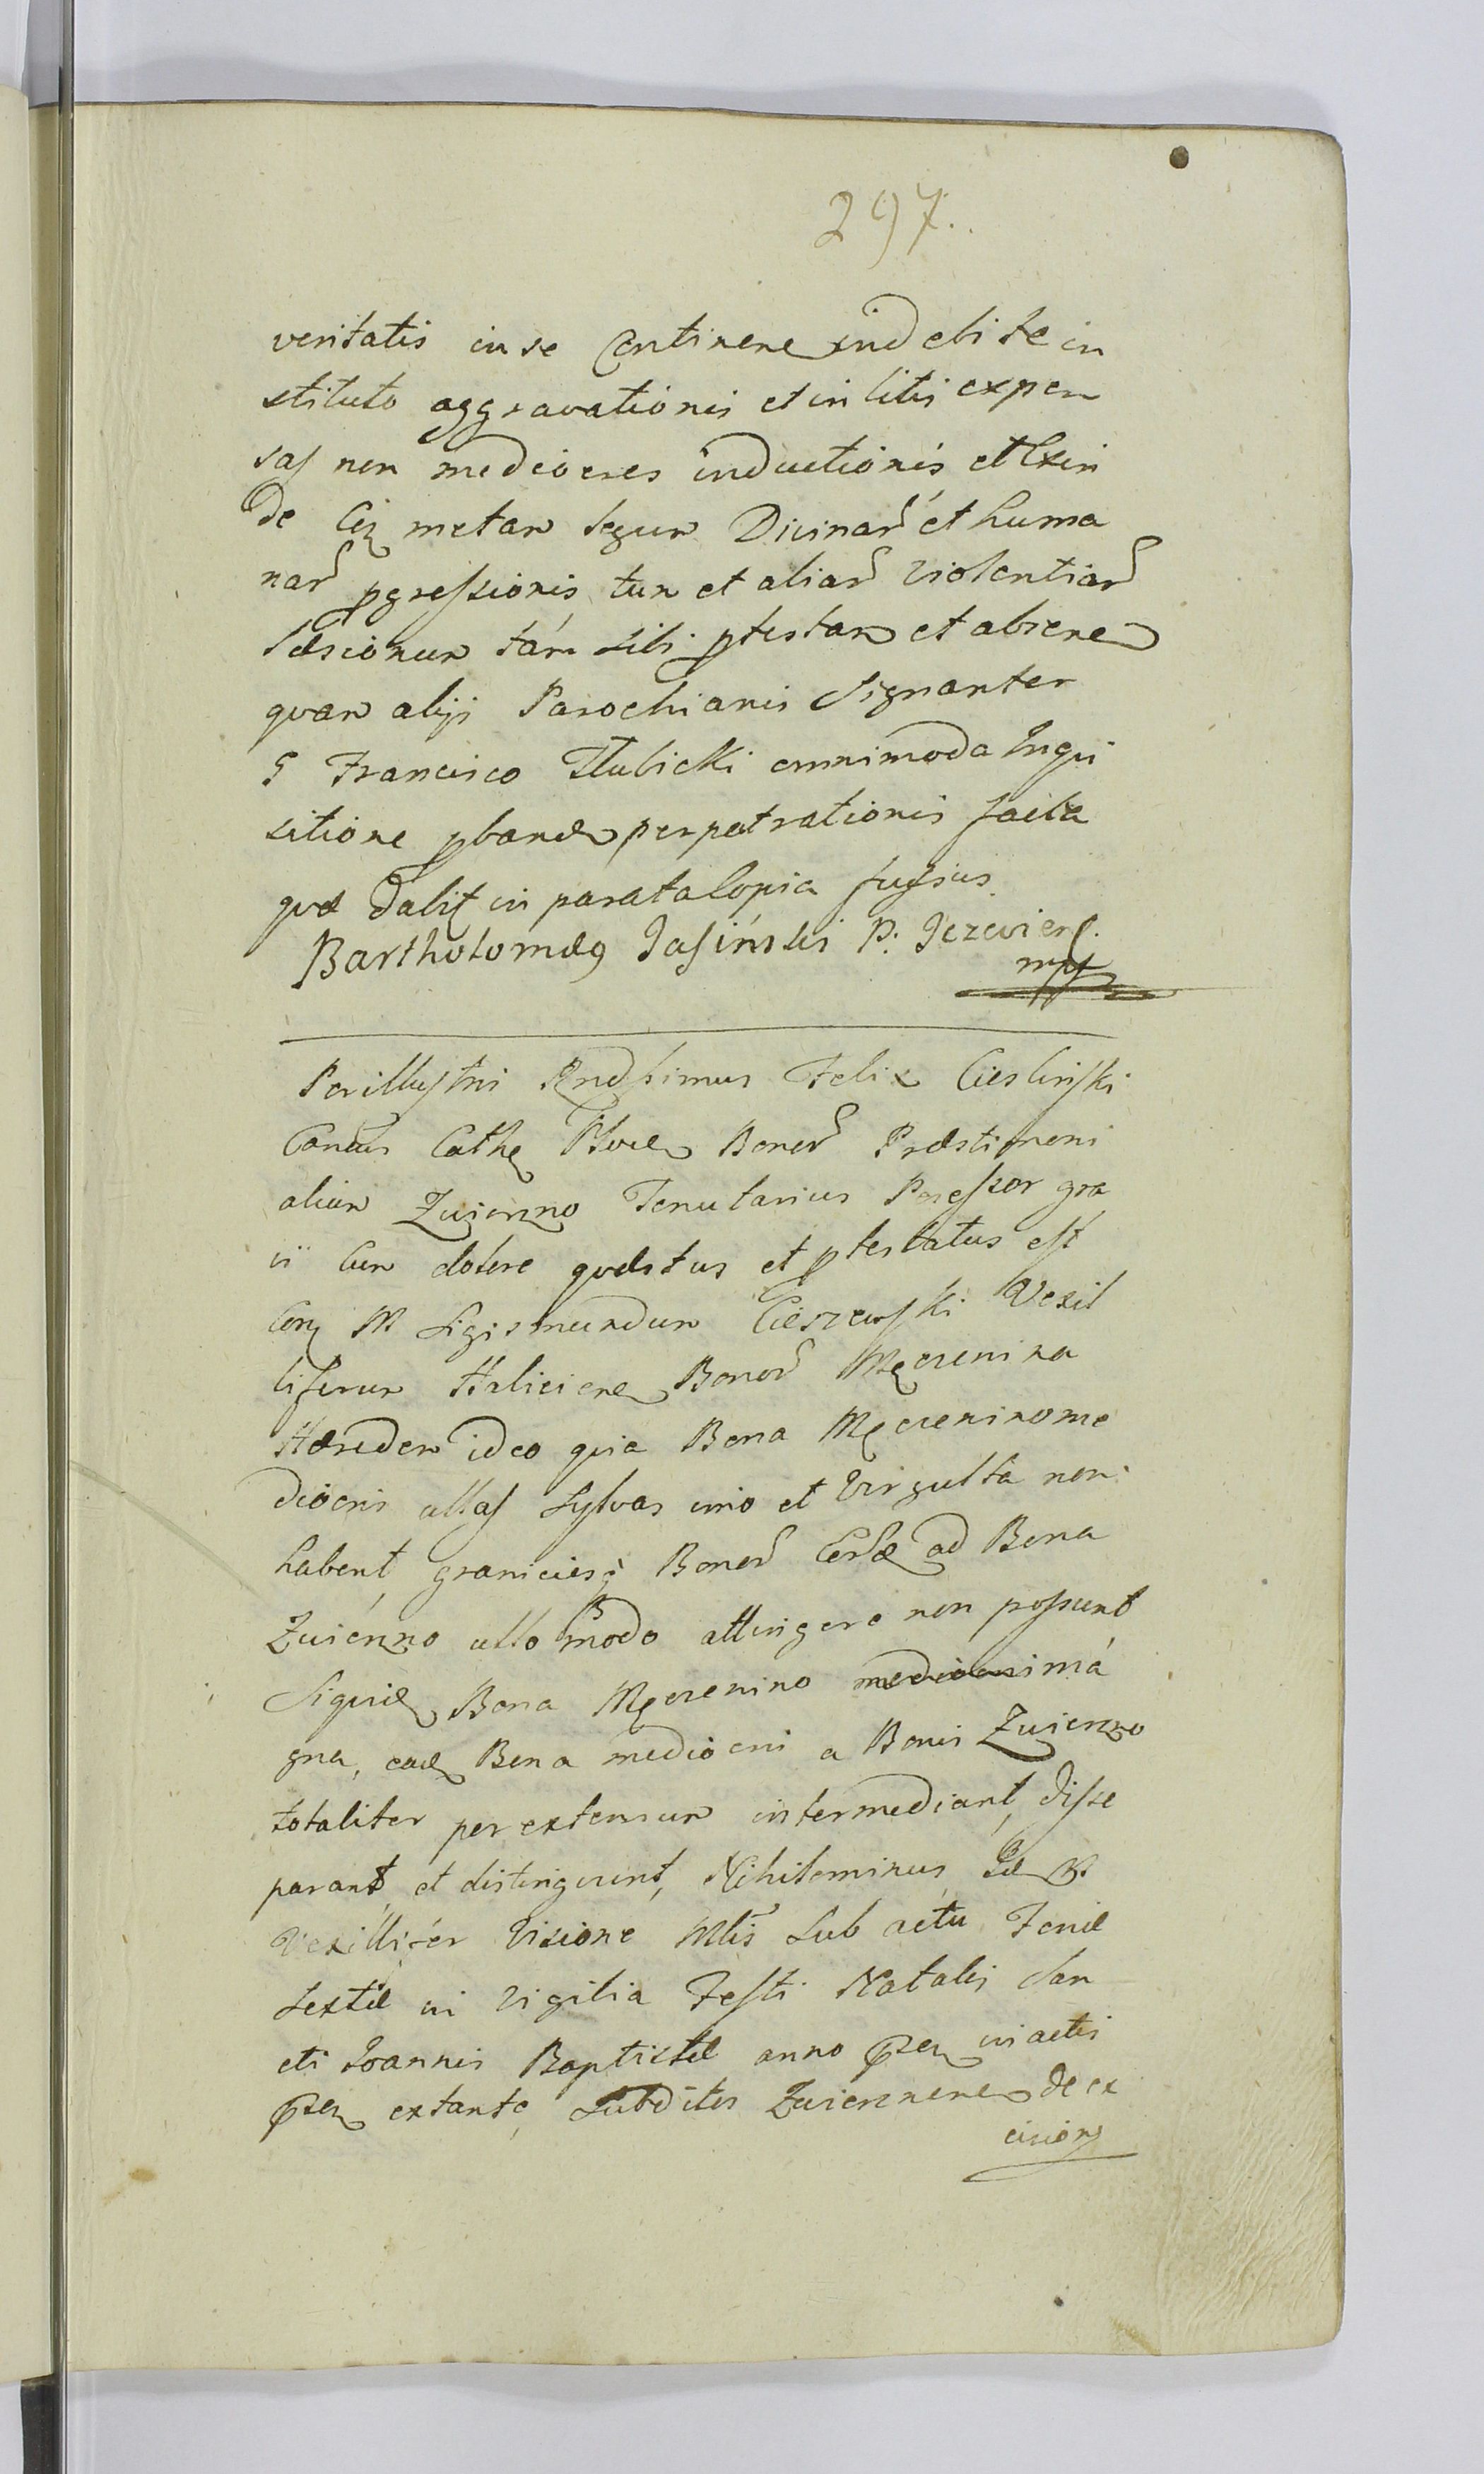 297.
veritatis in se Continene indebite in
stituto aggravationis et in litis expen
sas non mediocres inductionis et Exin
de metam legum Divinar et huma
nar pgressionis tum et aliar violentiar
læsionum tám sibi ptestan et absene
qvam alijs Parochianis Signanter
G Francisco Tłubicki omnimoda Inqui
sitione pband perpetrationis facta
qvæ dabit in parata Copia fusius
Bartholomæ9 Jasiński P. Jezewiens.
mpp
Perillustris Rndssimus Felix Cieslinski
Cancus Cathe Plocen Bonor Præstimoni
alium Zwierzno Tenutarius Possessor gra
vi Cum dolore qvæstus et ptestatus est
Con M Sigismundum Cieszewski Vexil
liferum Halicien Bonor Męczenina
Hæredem ideo quia Bona Męczenino me
diocris ullas Sylvas imo et Virgulta non
habent graniciesq Bonor ad Bona
Zwierzno ullo modo attingere non possunt
Siquid Bona Męczenino imá
gna, ead Bona mediocri a Bonis Zwierzno
totaliter per extensum intermediant, disse
parant et distingvunt, Nihilominus Id M
Vexillifer Visione Mlis Sub actu Feriæ
Sextæ in Vigilia Festi Natalis San
cti Joannis Baptistæ anno in actis
extante, Subditos Zwierznens de ex
cision